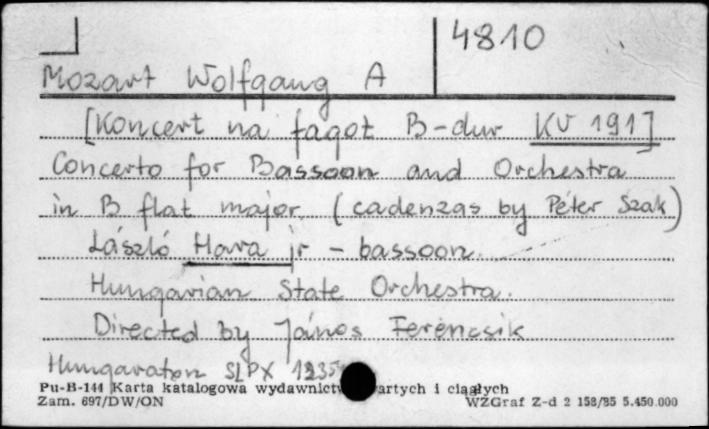 4810
Mozart Wolfgang A
[Koncert na fagot B-dur KV 191]
Concerto for Bassoon and Orchestra
in B flat major. (cadenzas by Péter Szak)
László Hara jr - bassoon.
Hungarian State Orchestra.
Directed by János Ferencsik
Hungaroton SLPX
Pu-B-144 Karta katalogowa wydawnictw artych i ciągłych
Zam. 697/DW/ON WZGraf Z-d 2 158/85 5.450.000